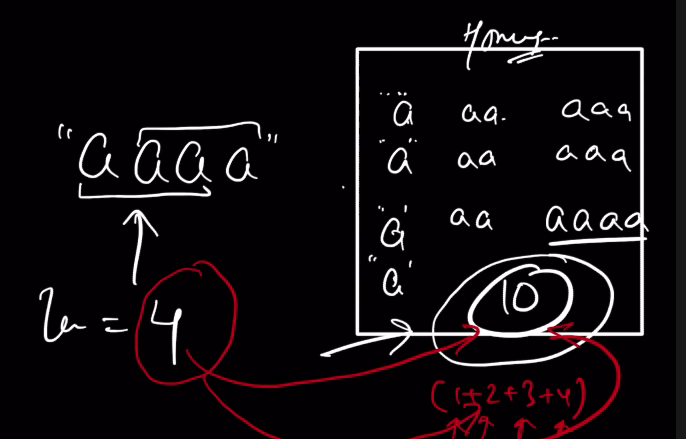 "a a a a"
len = 4
"a" aa. aaa
"a" aa aaa
"a" aa aaaa
"a"
10
(1+2+3+4)